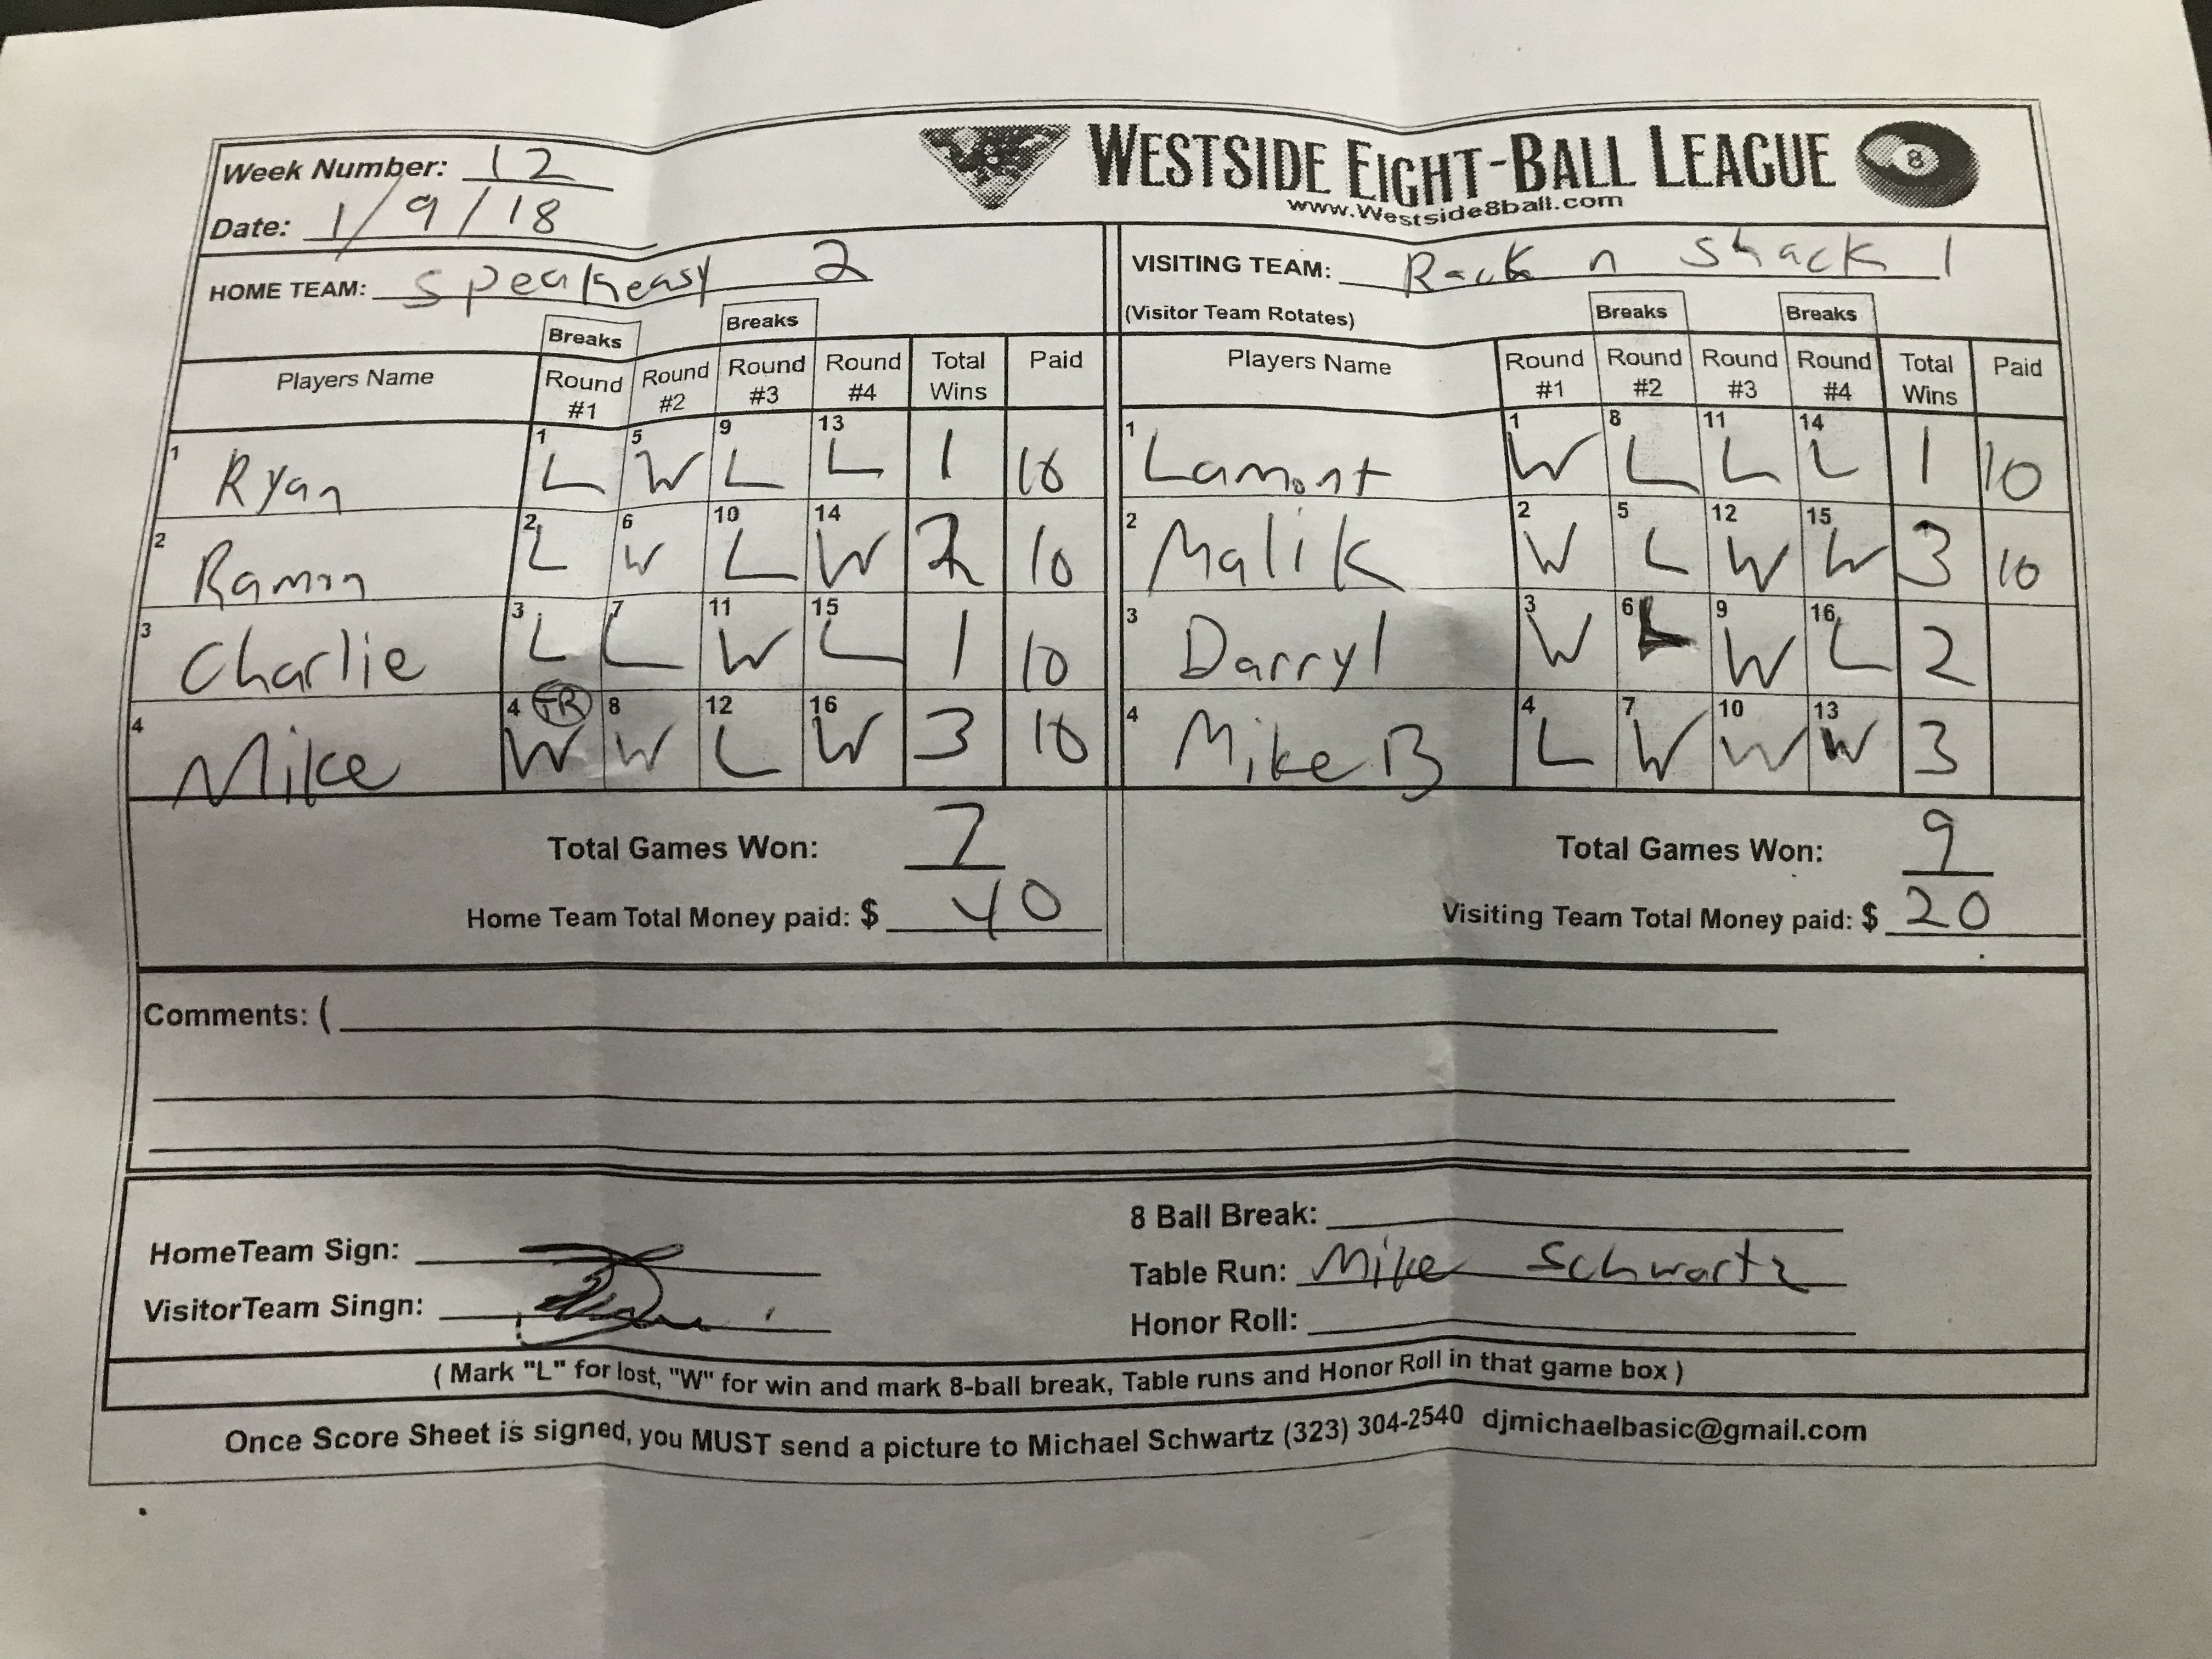 Week Number: 12
WESTSIDE EIGHT-BALL LEAGUE 8
Date: 1/9/18
www.Westside8ball.com
HOME TEAM: Speakeasy 2
VISITING TEAM: Rack n Shack 1
(Visitor Team Rotates)
Breaks Breaks Breaks Breaks
Players Name Round #1 Round #2 Round #3 Round #4 Total Wins Paid
Players Name Round #1 Round #2 Round #3 Round #4 Total Wins Paid
1 Ryan 1 L 5 W 9 L 13 L 1 10
1 Lamont 1 W 8 L 11 L 14 L 1 10
2 Ramon 2 L 6 W 10 L 14 W 2 10
2 Malik 2 W 5 L 12 W 15 W 3 10
3 Charlie 3 L 7 L 11 W 15 L 1 10
3 Darryl 3 W 6 L 9 W 16 L 2
4 Mike 4 TR W 8 W 12 L 16 W 3 10
4 Mike B 4 L 7 W 10 W 13 W 3
Total Games Won: 7
Total Games Won: 9
Home Team Total Money paid: $ 40
Visiting Team Total Money paid: $ 20
Comments: (
8 Ball Break:
HomeTeam Sign:
Table Run: Mike Schwartz
VisitorTeam Singn:
Honor Roll:
( Mark "L" for lost, "W" for win and mark 8-ball break, Table runs and Honor Roll in that game box )
Once Score Sheet is signed, you MUST send a picture to Michael Schwartz (323) 304-2540 djmichaelbasic@gmail.com